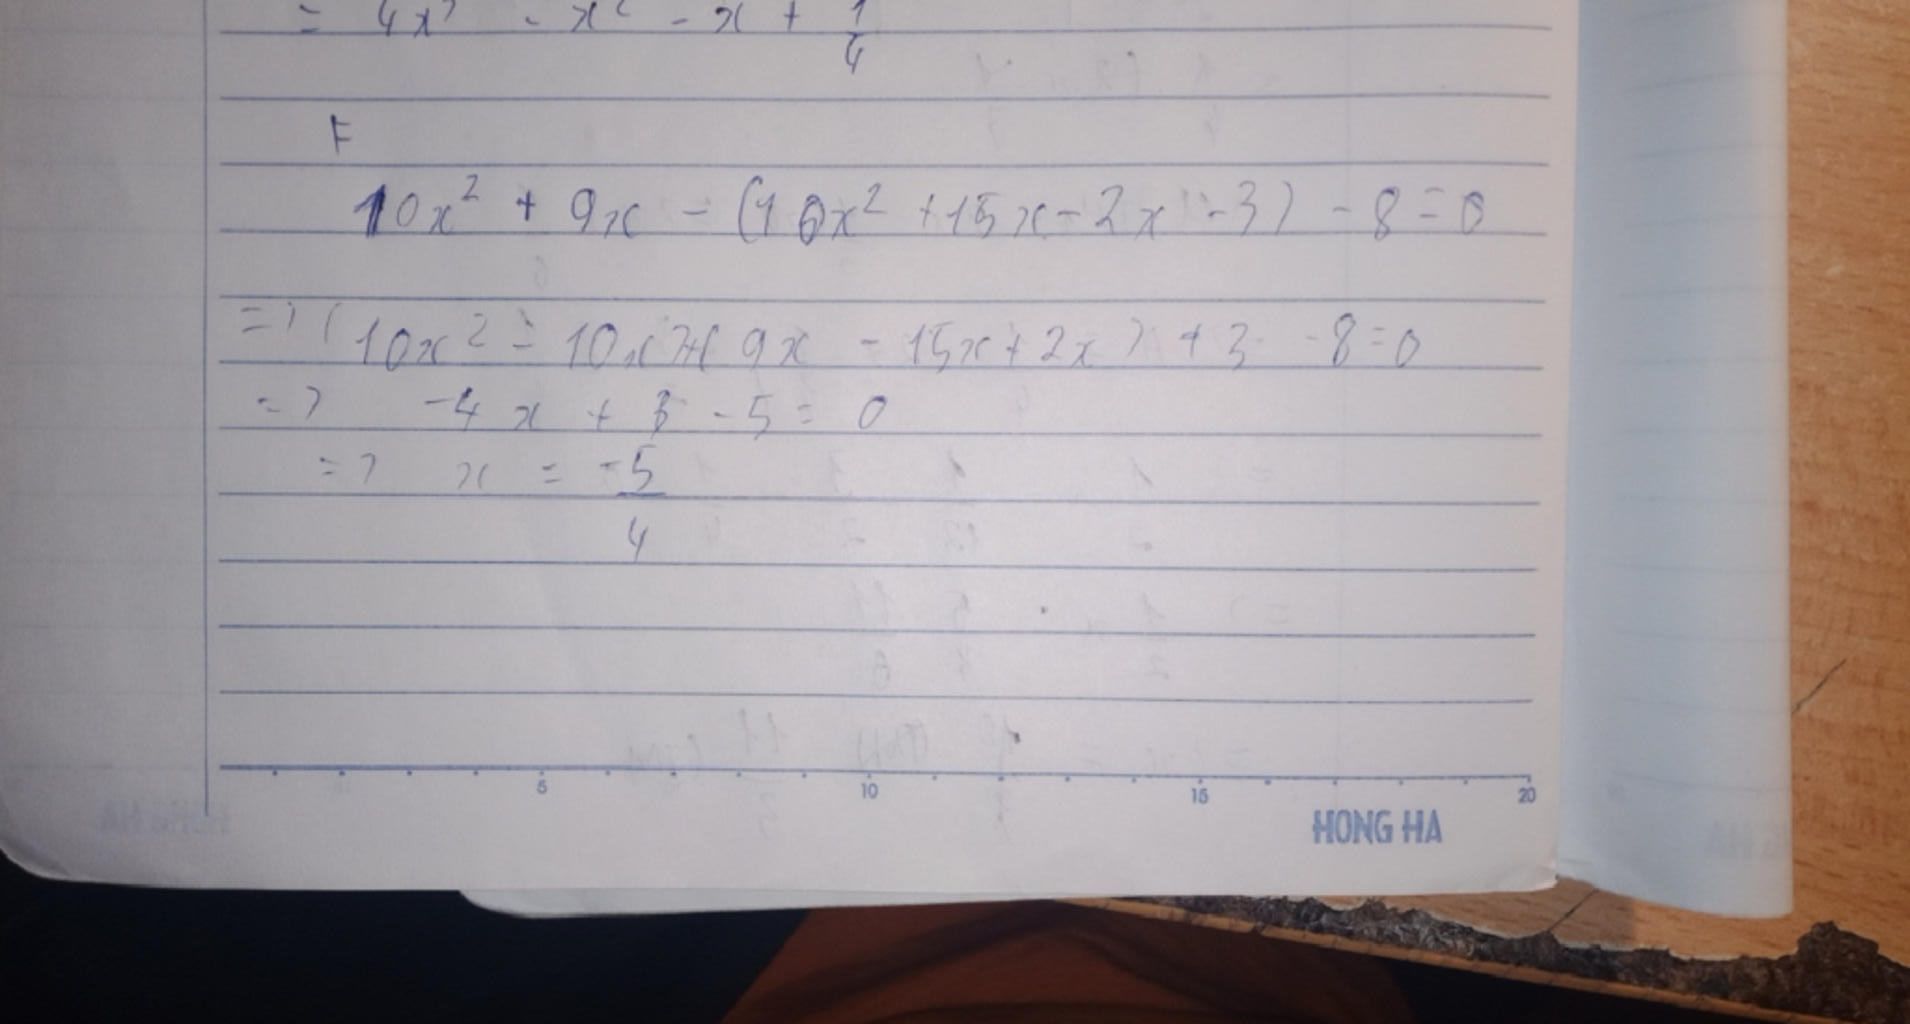 = 4x³ - x² - x + 1/4
F
10x² + 9x - (10x² + 15x - 2x - 3) - 8 = 0
=> (10x² - 10x²) + (9x - 15x + 2x) + 3 - 8 = 0
=> -4x + 3 - 5 = 0
=> x = -5/4
5 10 15 20
HONG HA